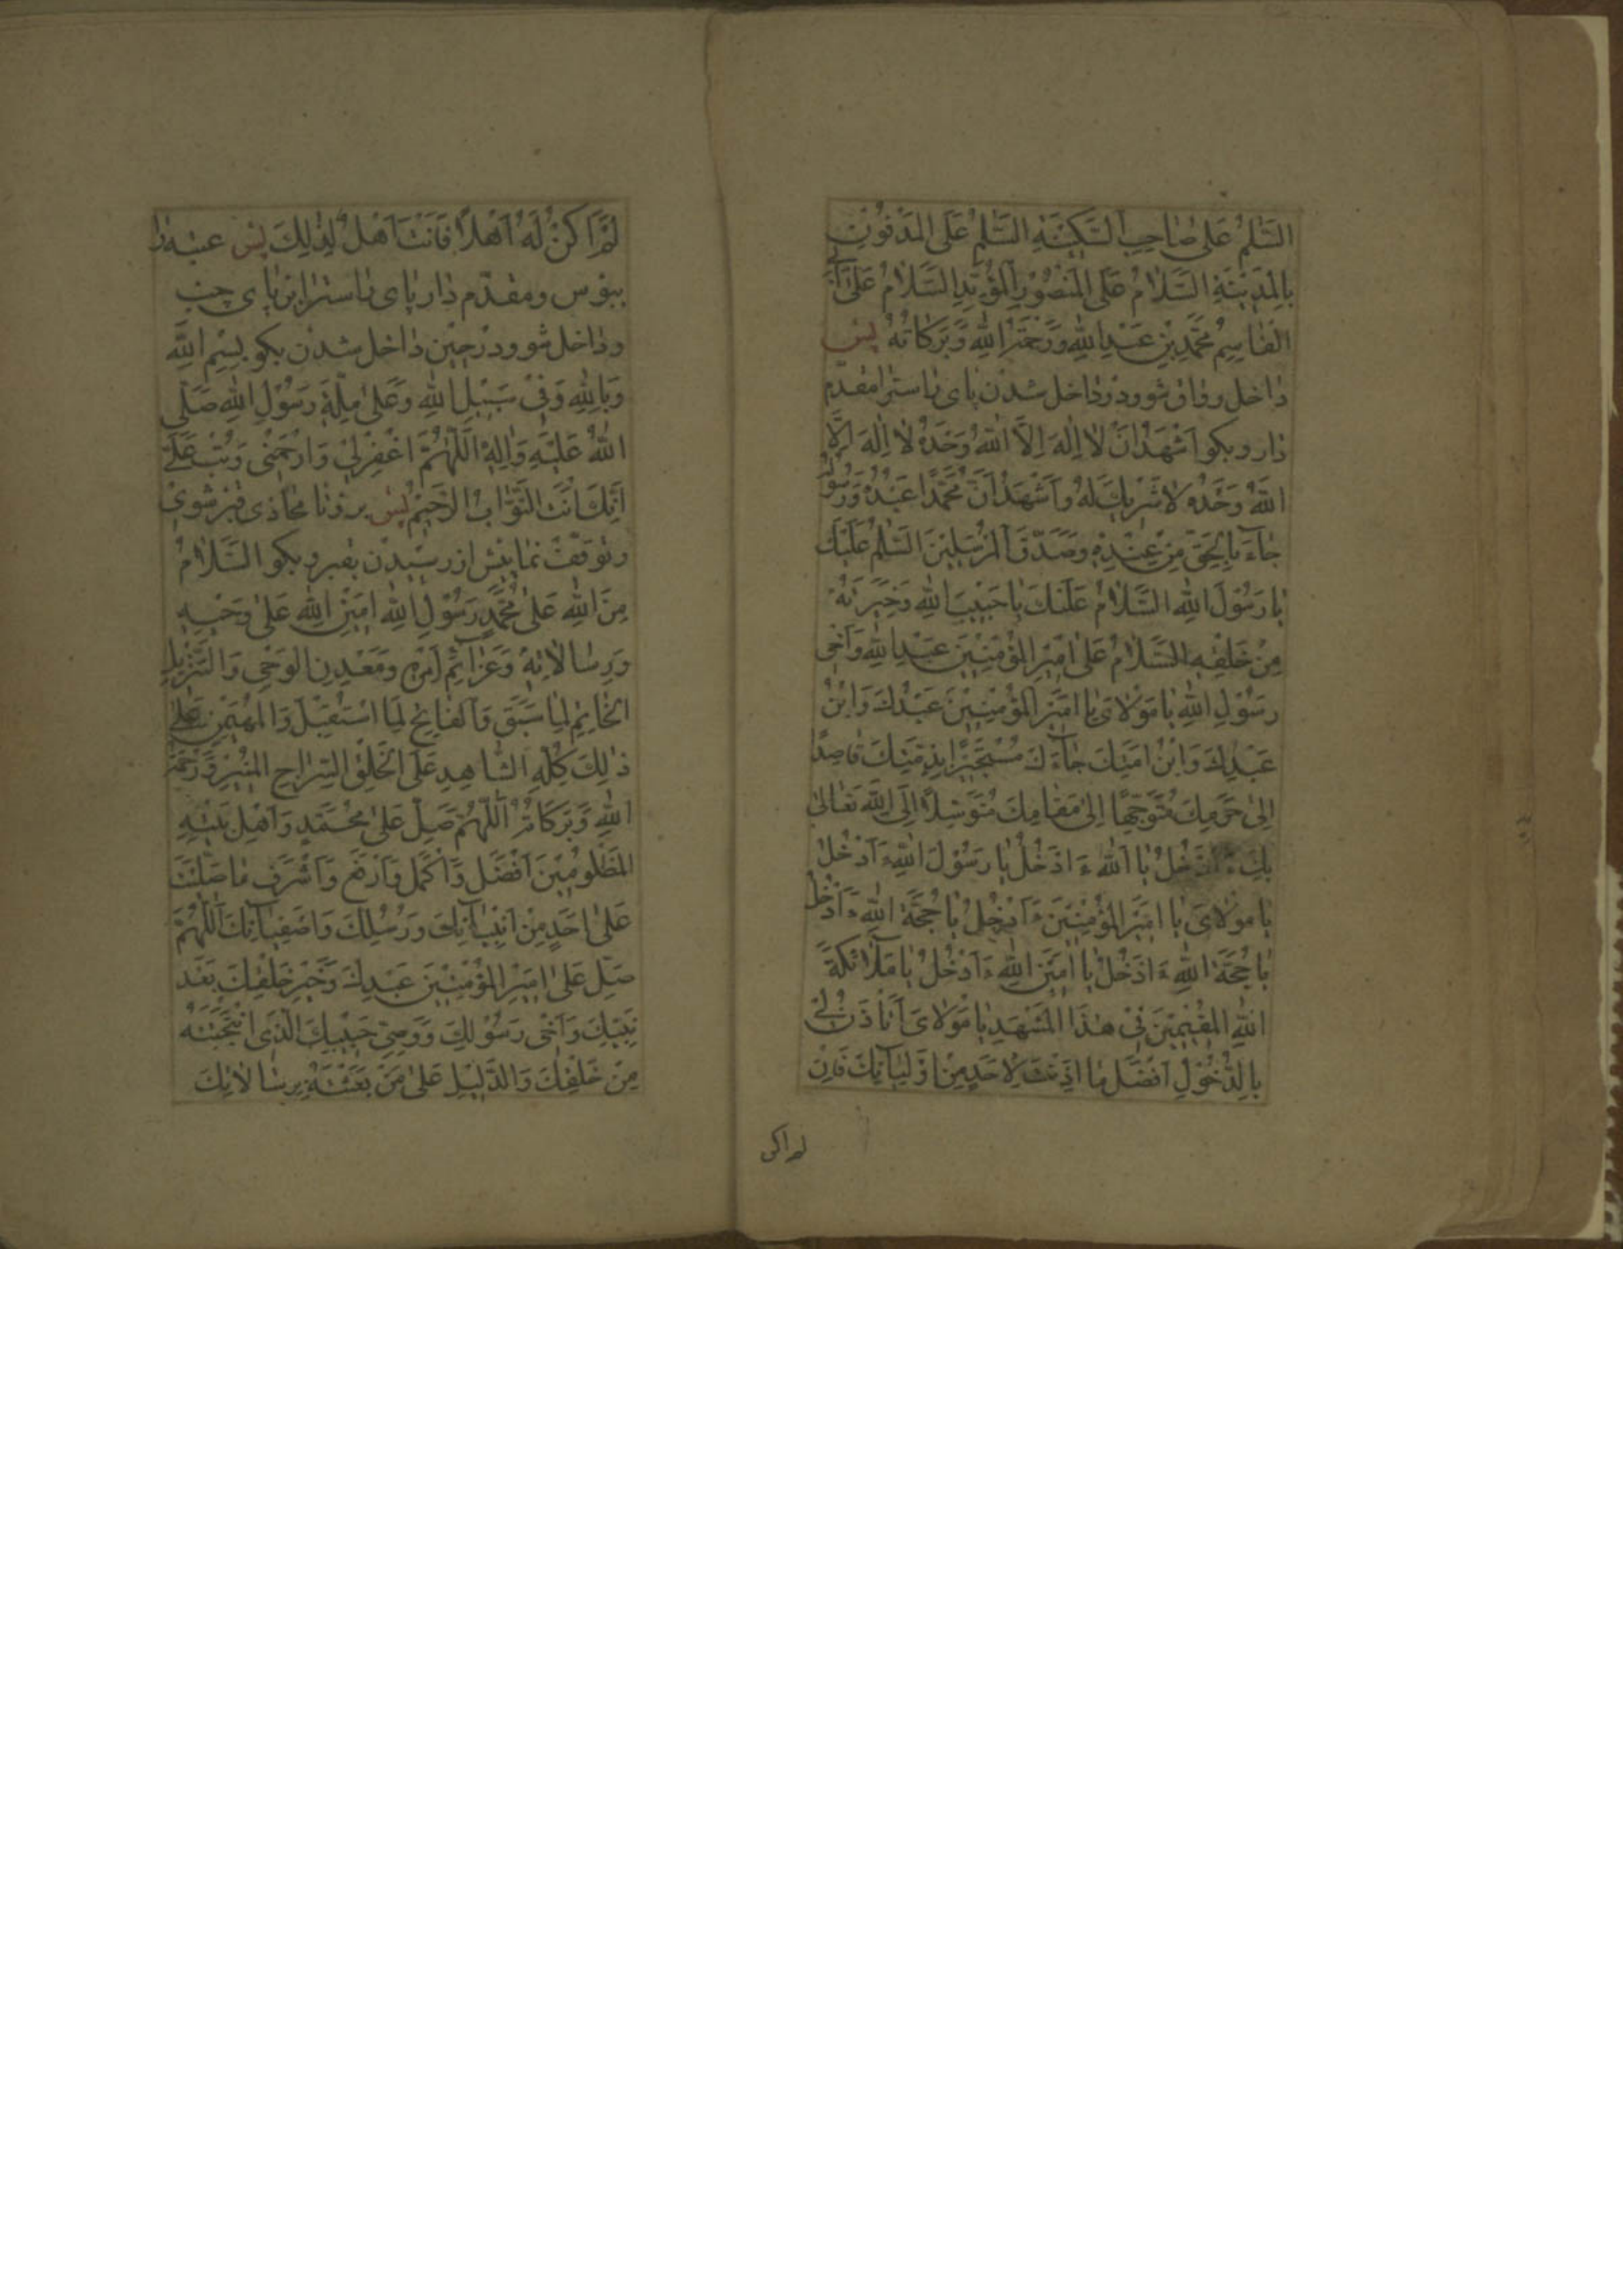 السَّلٰمُ عَلىٰ صٰاحِبِ السَّكِينَةِ السَّلٰمُ عَلَى المَدْفُونِ
بِالْمَدِينَةِ السَّلٰامُ عَلَى الْمَنْصُورِ الْمُؤَيَّدِ السَّلٰامُ عَلىٰ اَبِي
القٰاسِمِ مُحَمَّدِ بْنِ عَبْدِ اللهِ وَرَحْمَةُ اللهِ وَبَرَكٰاتُهُ پس
داخل رواق شو و در داخل شدن پاى راست را مقدّم
دار و بكو اَشْهَدُ اَنْ لٰا اِلٰهَ اِلَّا اللهُ وَحْدَهُ لٰا اِلٰهَ اِلَّا
اللهُ وَحْدَهُ لٰا شَرِيكَ لَهُ وَاَشْهَدُ اَنَّ مُحَمَّدًا عَبْدُهُ وَرَسُولُهُ
جٰاءَ بِالْحَقِّ مِنْ عِنْدِهِ وَصَدَّقَ الْمُرْسَلِينَ السَّلٰمُ عَلَيْكَ
يٰا رَسُولَ اللهِ السَّلٰامُ عَلَيْكَ يٰا حَبِيبَ اللهِ وَخِيَرَتَهُ
مِنْ خَلْقِهِ السَّلٰامُ عَلىٰ اَمِيرِ الْمُؤْمِنِينَ عَبْدِ اللهِ وَاَخِى
رَسُولِ اللهِ يٰا مَوْلٰاىَ يٰا اَمِيرَ الْمُؤْمِنِينَ عَبْدُكَ وَابْنُ
عَبْدِكَ وَابْنُ اَمَتِكَ جٰاءَكَ مُسْتَجِيرًا بِذِمَّتِكَ قٰاصِدًا
اِلىٰ حَرَمِكَ مُتَوَجِّهًا اِلىٰ مَقٰامِكَ مُتَوَسِّلًا اِلَى اللهِ تَعٰالىٰ
بِكَ ءَاَدْخُلُ يٰا اَللهُ ءَاَدْخُلُ يٰا رَسُولَ اللهِ ءَاَدْخُلُ
يٰا مَوْلٰاىَ يٰا اَمِيرَ الْمُؤْمِنِينَ ءَاَدْخُلُ يٰا حُجَّةَ اللهِ ءَاَدْخُلُ
يٰا حُجَّةَ اللهِ ءَاَدْخُلُ يٰا اَمِينَ اللهِ ءَاَدْخُلُ يٰا مَلٰائِكَةَ
اللهِ الْمُقِيمِينَ فِى هٰذَا الْمَشْهَدِ يٰا مَوْلٰاىَ اَتَأْذَنُ لِى
بِالدُّخُولِ اَفْضَلَ مٰا اَذِنْتَ لِاَحَدٍ مِنْ اَوْلِيٰائِكَ فَاِنْ
لم اكن
لَمْ اَكُنْ لَهُ اَهْلًا فَاَنْتَ اَهْلٌ لِذٰلِكَ پس عتبه را
ببوس و مقدّم دار پاى راست را بر پاى چپ
و داخل شو و در حين داخل شدن بكو بِسْمِ اللهِ
وَبِاللهِ وَفِى سَبِيلِ اللهِ وَعَلىٰ مِلَّةِ رَسُولِ اللهِ صَلَّى
اللهُ عَلَيْهِ وَاٰلِهِ اَللّٰهُمَّ اغْفِرْ لِى وَارْحَمْنِى وَتُبْ عَلَىَّ
اِنَّكَ اَنْتَ التَّوَّابُ الرَّحِيمُ پس برو تا محاذى قبر شوى
و توقف نما پيش از رسيدن بقبر و بكو السَّلٰامُ
مِنَ اللهِ عَلىٰ مُحَمَّدٍ رَسُولِ اللهِ اَمِينِ اللهِ عَلىٰ وَحْيِهِ
وَرِسٰالٰاتِهِ وَعَزٰائِمِ اَمْرِهِ وَمَعْدِنِ الْوَحْىِ وَالتَّنْزِيلِ
الْخٰاتِمِ لِمٰا سَبَقَ وَالْفٰاتِحِ لِمَا اسْتُقْبِلَ وَالْمُهَيْمِنِ عَلىٰ
ذٰلِكَ كُلِّهِ الشّٰاهِدِ عَلَى الْخَلْقِ السِّرٰاجِ الْمُنِيرِ وَرَحْمَةُ
اللهِ وَبَرَكٰاتُهُ اَللّٰهُمَّ صَلِّ عَلىٰ مُحَمَّدٍ وَاَهْلِ بَيْتِهِ
الْمَظْلُومِينَ اَفْضَلَ وَاَكْمَلَ وَاَرْفَعَ وَاَشْرَفَ مٰا صَلَّيْتَ
عَلىٰ اَحَدٍ مِنْ اَنْبِيٰائِكَ وَرُسُلِكَ وَاَصْفِيٰائِكَ اَللّٰهُمَّ
صَلِّ عَلىٰ اَمِيرِ الْمُؤْمِنِينَ عَبْدِكَ وَخَيْرِ خَلْقِكَ بَعْدَ
نَبِيِّكَ وَاَخِى رَسُولِكَ وَوَصِىِّ حَبِيبِكَ الَّذِى انْتَجَبْتَهُ
مِنْ خَلْقِكَ وَالدَّلِيلِ عَلىٰ مَنْ بَعَثْتَهُ بِرِسٰالٰاتِكَ